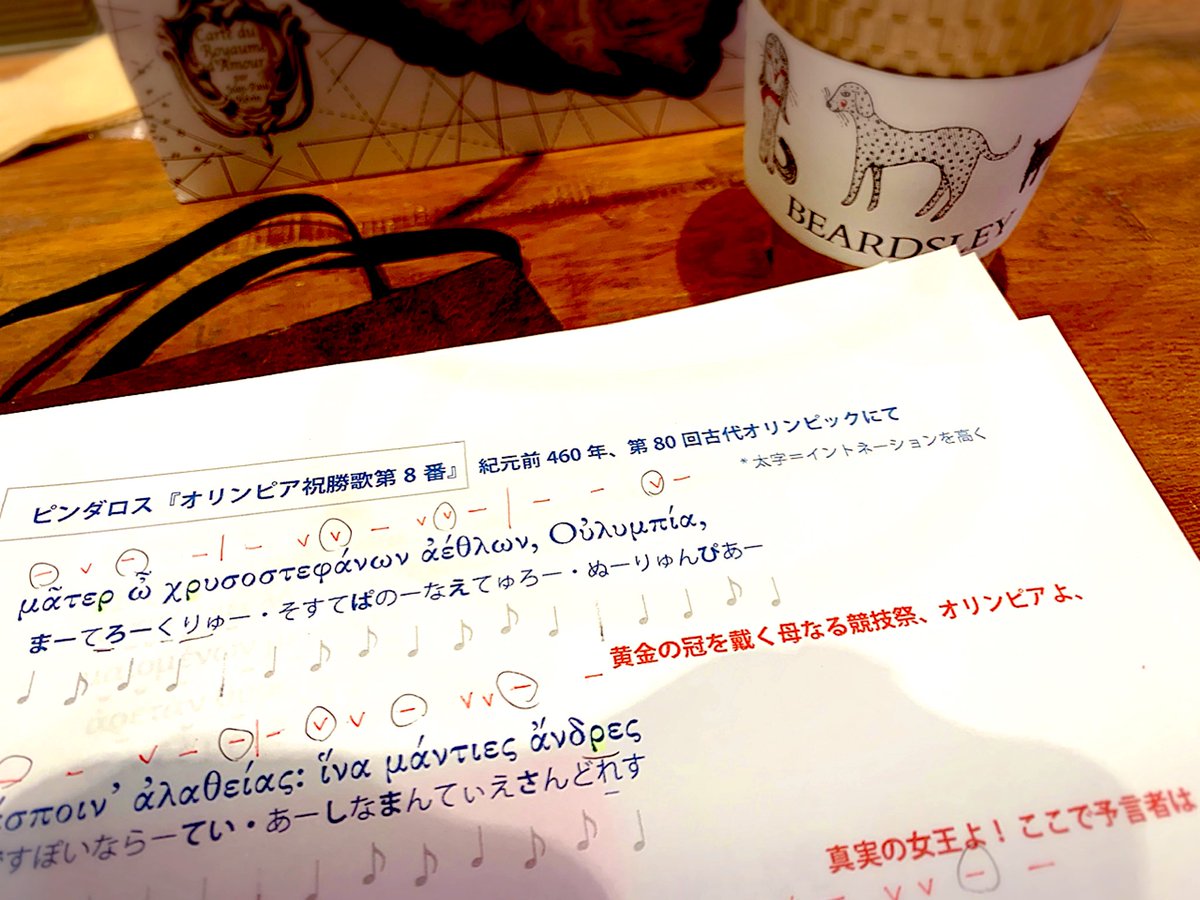 Carte du
Royaume
d'Amour
par
BEARDSLEY
ピンダロス『オリンピア祝勝歌第 8 番』 紀元前 460 年、第 80 回古代オリンピックにて
* 太字=イントネーションを高く
μᾶτερ ὦ χρυσοστεφάνων ἀέθλων, Οὐλυμπία,
まーてろーくりゅー・そすてぱのーなえてゅろー・ぬーりゅんぴあー
黄金の冠を戴く母なる競技祭、オリンピアよ、
έσποιν' ἀλαθείας: ἵνα μάντιες ἄνδρες
すぽいならーてい・あーしなまんてぃえさんどれす
真実の女王よ! ここで予言者は